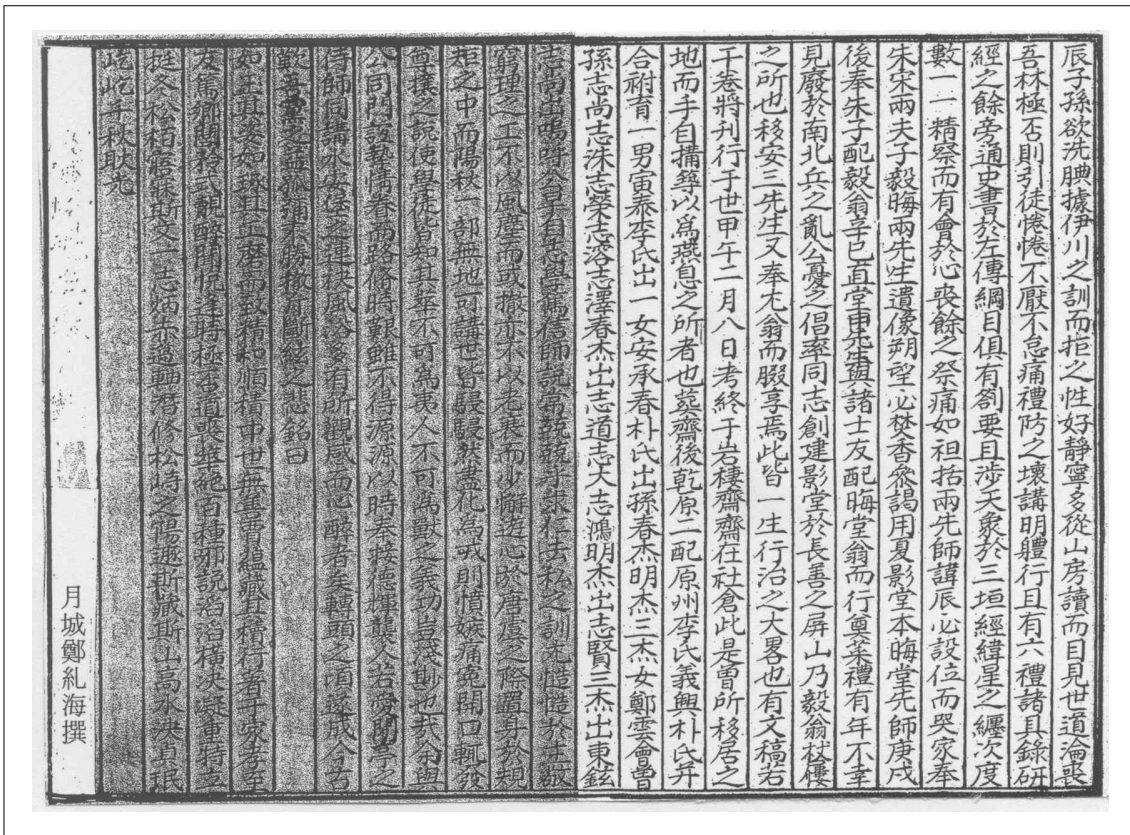 辰子孫欲洗腆據伊川之訓而拒之性好靜寧多從山房讀而目見世道淪喪
吾林極否則引徒惓惓不厭不怠痛禮防之壞講明軆行且有六禮諸具錄硏
經之餘旁通史書於左傳綱目俱有劄要且涉天象於三垣經緯星之纏次度
數一一精察而有會於心喪餘之祭痛如袒括兩先師諱辰必設位而哭家奉
朱宋兩夫子毅晦兩先生遺像朔望必焚香參謁用夏影堂本晦堂先師庚戌
後奉朱子配毅翁辛巳直堂申先生與諸士友配晦堂翁而行尊菜禮有年不幸
見廢於南北兵之亂公憂之倡率同志創建影堂於長善之屛山乃毅翁杖屨
之所也移安三先生又奉尤翁而腏享焉此皆一生行治之大畧也有文稿若
干卷將刊行于世甲午二月八日考終于岩棲齋齋在社倉此是曾所移居之
地而手自搆尊以爲燕息之所者也葬齋後乾原二配原州李氏義興朴氏幷
合祔育一男寅泰李氏出一女安承春朴氏出孫春杰明杰三杰女鄭雲會曾
孫志尙志洙志榮志洛志澤春杰出志道志大志鴻明杰出志賢三杰出東鉉
志尙出嗚呼公早有志學篤信師說常兢兢于求仁去私之訓尤慥慥於主敬
窮理之工不以風塵而或撤亦不以老衰而少懈遊心於唐虞之際置身於規
矩之中而陽秋一部無地可講世皆駸駸然盡化爲 則憤嫉痛寃開口輒發
尊攘之說使學徒皆知其華不可爲夷人不可爲獸之義功豈淺尠也哉余與
公同門設契情眷 時艱雖不得源源以時奉接德輝襲人若 之
侍師同講氷安 運秋風 多有所觀感而心醉者矣轉頭之頃遽成今古
歎 之益孤彌不勝撤 斷絃之悲銘曰
如玉其姿如 其 磨而致精和順積中世無 蘊藏其積行著于家孝至
友篤鄕閭矜式 閭悅逢時極否道喪華絶百種邪說滔滔橫決凝重特立
挺冬松栢寤寐斯文一志炳赤 軸潛修松峙之 斯藏斯山高水泱貞珉
屹屹千秋耿光
月城鄭糺海撰